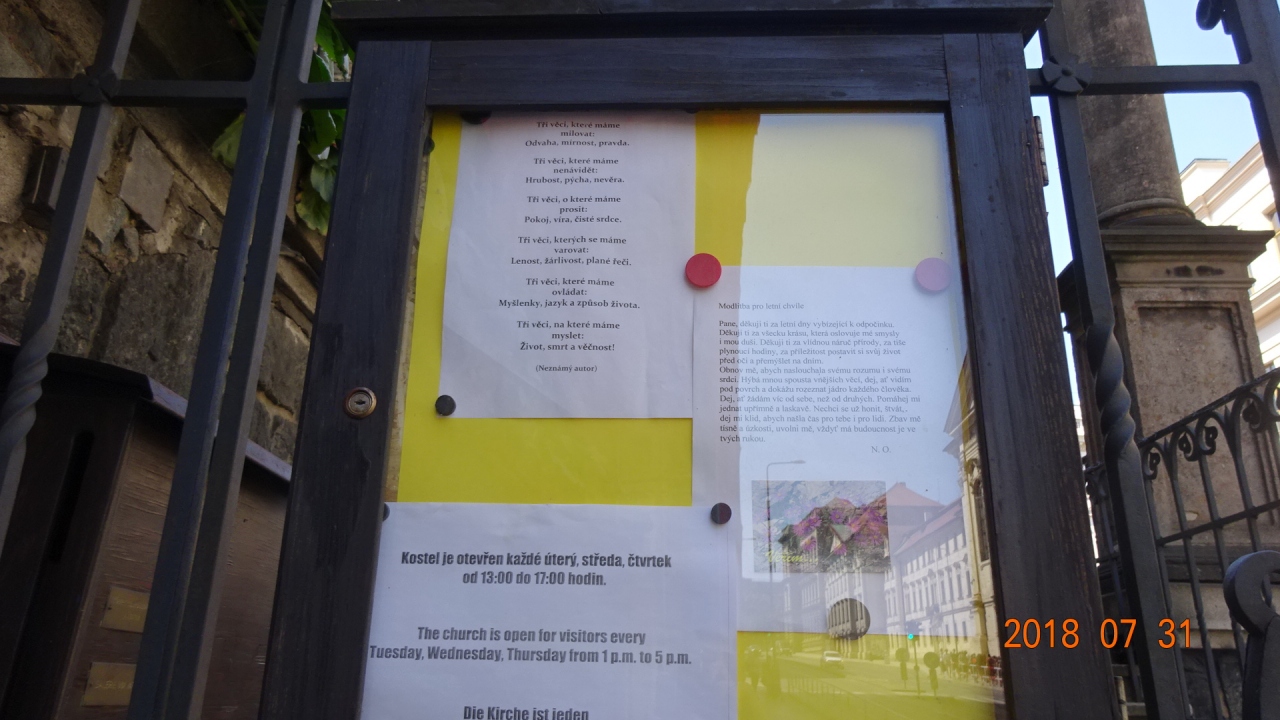 Tři věci, které máme
milovat:
Odvaha, mírnost, pravda.
Tři věci, které máme
nenávidět:
Hrubost, pýcha, nevěra.
Tři věci, o které máme
prosit:
Pokoj, víra, čisté srdce.
Tři věci, kterých se máme
varovat:
Lenost, žárlivost, plané řeči.
Tři věci, které máme
ovládat:
Myšlenky, jazyk a způsob života.
Tři věci, na které máme
myslet:
Život, smrt a věčnost!
(Neznámý autor)
Modlitba pro letní chvíle
Pane, děkuji ti za letní dny vybízející k odpočinku.
Děkuji ti za všecku krásu, která oslovuje mé smysly
i mou duši. Děkuji ti za vlídnou náruč přírody, za tiše
plynoucí hodiny, za příležitost postavit si svůj život
před oči a přemýšlet na dním.
Obnov mě, abych naslouchala svému rozumu i svému
srdci. Hýbá mnou spousta vnějších věcí, dej, ať vidím
pod povrch a dokážu rozeznat jádro každého člověka.
Dej, ať žádám víc od sebe, než od druhých. Pomáhej mi
jednat upřímně a laskavě. Nechci se už honit, štvát,
dej mi klid, abych našla čas pro tebe i pro lidi. Zbav mě
tísně a úzkosti, uvolni mě, vždyť má budoucnost je ve
tvých rukou.
N. O.
Kostel je otevřen každé úterý, středa, čtvrtek
od 13:00 do 17:00 hodin.
The church is open for visitors every
Tuesday, Wednesday, Thursday from 1 p.m. to 5 p.m.
Die Kirche ist jeden
2018 07 31